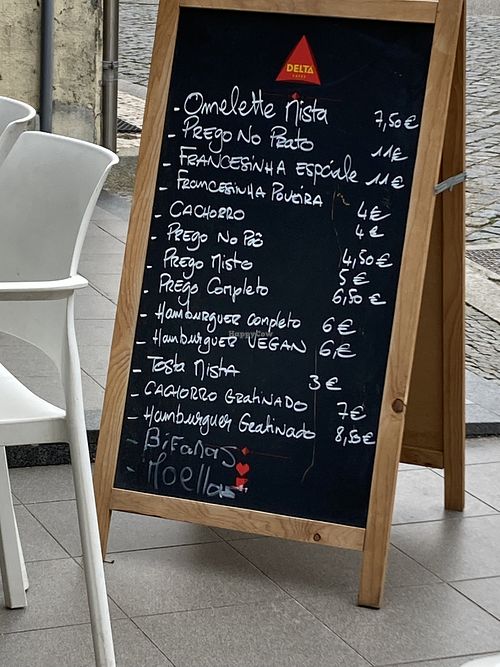 DELTA
CAFÉS
- Omelette Mista 7,50€
- Prego No Prato 11€
- Francesinha Espéciale 11€
- Francesinha Poveira 4€
- Cachorro 4€
- Prego No Pão 4,50€
- Prego Misto 5€
- Prego Completo 6,50€
- Hamburguer completo 6€
- Hamburguer VEGAN 6€
- Tosta Mista 3€
- Cachorro Gratinado 7€
- Hamburguer Gratinado 8,50€
- Bifanas
- Moellas
HappyCow